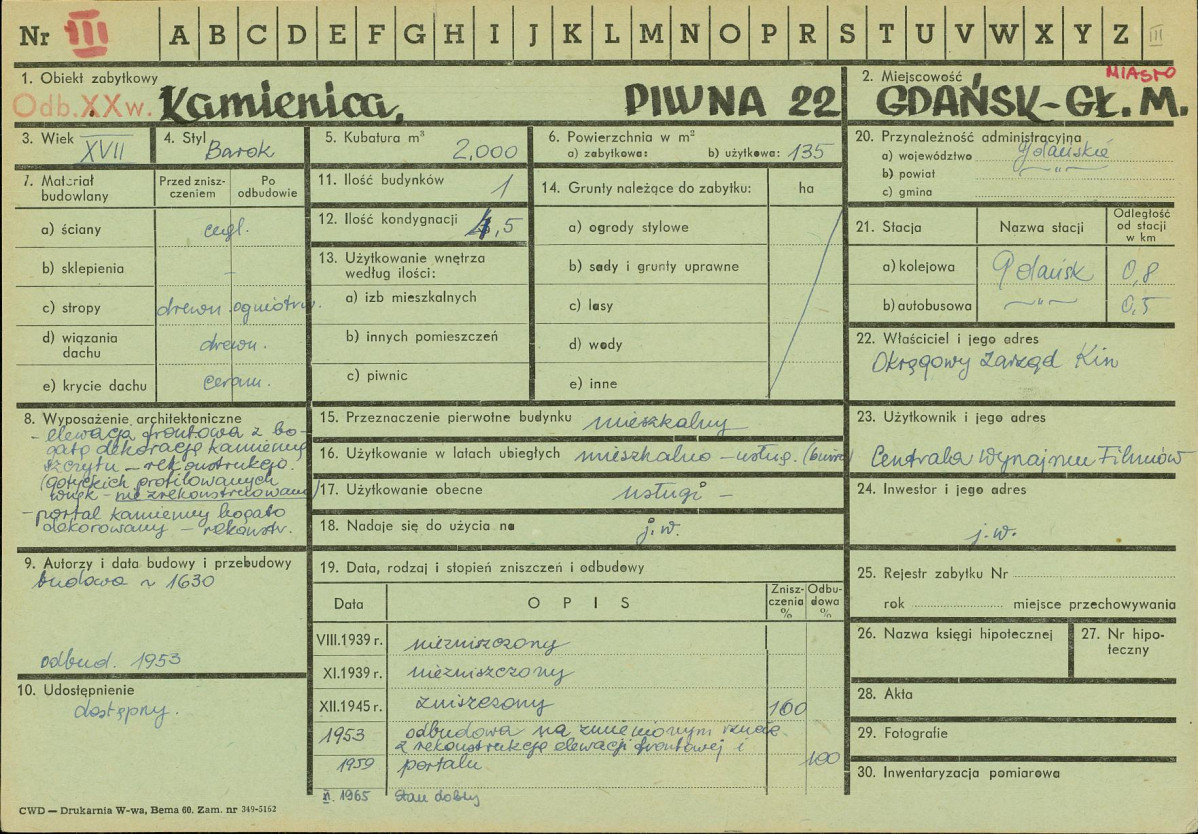 Nr III A B C D E F G H I J K L M N O P R S T U V W X Y Z III
1. Obiekt zabytkowy
Odb. XX w. Kamienica, PIWNA 22
2. Miejscowość MIASTO
GDAŃSK-GŁ. M.
3. Wiek XVII
4. Styl Barok
5. Kubatura m³ 2,000
6. Powierzchnia w m²
a) zabytkowa: b) użytkowa: 135
7. Materiał budowlany
Przed zniszczeniem
Po odbudowie
a) ściany cegl.
b) sklepienia –
c) stropy drewn. ogniotrw.
d) wiązania dachu drewn.
e) krycie dachu ceram.
8. Wyposażenie architektoniczne
- elewacja frontowa z bo-
gatą dekoracją kamienną
szczytu – rekonstrukcja.
(gotyckich profilowanych
wnęk – nie zrekonstruowano)
- portal kamienny bogato
dekorowany – rekonstr.
9. Autorzy i data budowy i przebudowy
budowa ~ 1630
odbud. 1953
10. Udostępnienie
dostępny.
11. Ilość budynków 1
12. Ilość kondygnacji 4,5
13. Użytkowanie wnętrza
według ilości:
a) izb mieszkalnych
b) innych pomieszczeń
c) piwnic
14. Grunty należące do zabytku: ha
a) ogrody stylowe
b) sady i grunty uprawne
c) lasy
d) wody
e) inne
15. Przeznaczenie pierwotne budynku mieszkalny
16. Użytkowanie w latach ubiegłych mieszkalno – usług. (biura)
17. Użytkowanie obecne usługi –
18. Nadaje się do użycia na j. w.
19. Data, rodzaj i stopień zniszczeń i odbudowy
Data OPIS Zniszczenia % Odbudowa %
VIII.1939 r. niezniszczony
XI.1939 r. niezniszczony
XII.1945 r. zniszczony 100
1953 odbudowa na zmienionym rzucie
z rekonstrukcją elewacji frontowej i
1959 portalu 100
1965 Stan dobry
20. Przynależność administracyjna
a) województwo gdańskie
b) powiat – " –
c) gmina
21. Stacja Nazwa stacji Odległość od stacji w km
a) kolejowa Gdańsk 0,8
b) autobusowa – " – 0,5
22. Właściciel i jego adres
Okręgowy Zarząd Kin
23. Użytkownik i jego adres
Centrala Wynajmu Filmów
24. Inwestor i jego adres
j. w.
25. Rejestr zabytku Nr
rok miejsce przechowywania
26. Nazwa księgi hipotecznej
27. Nr hipo-
teczny
28. Akta
29. Fotografie
30. Inwentaryzacja pomiarowa
CWD — Drukarnia W-wa, Bema 60. Zam. nr 349-5162